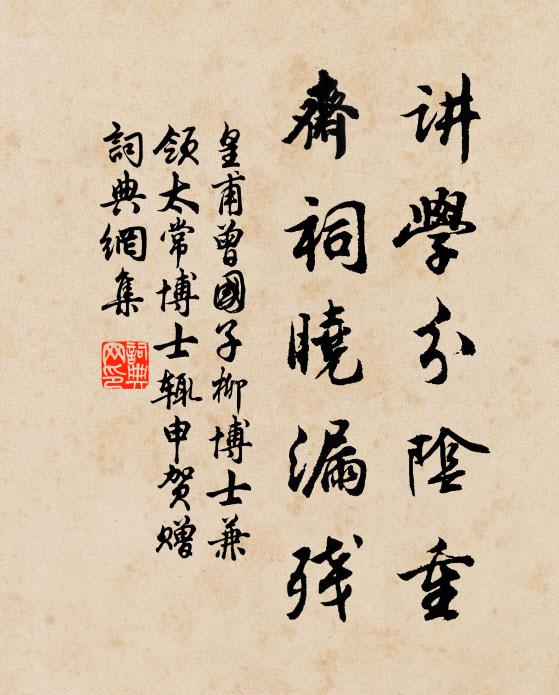 讲學分陰重
齋祠曉漏残
皇甫曾國子柳博士兼
领太常博士辄申贺赠
詞典網集
詞典
网印